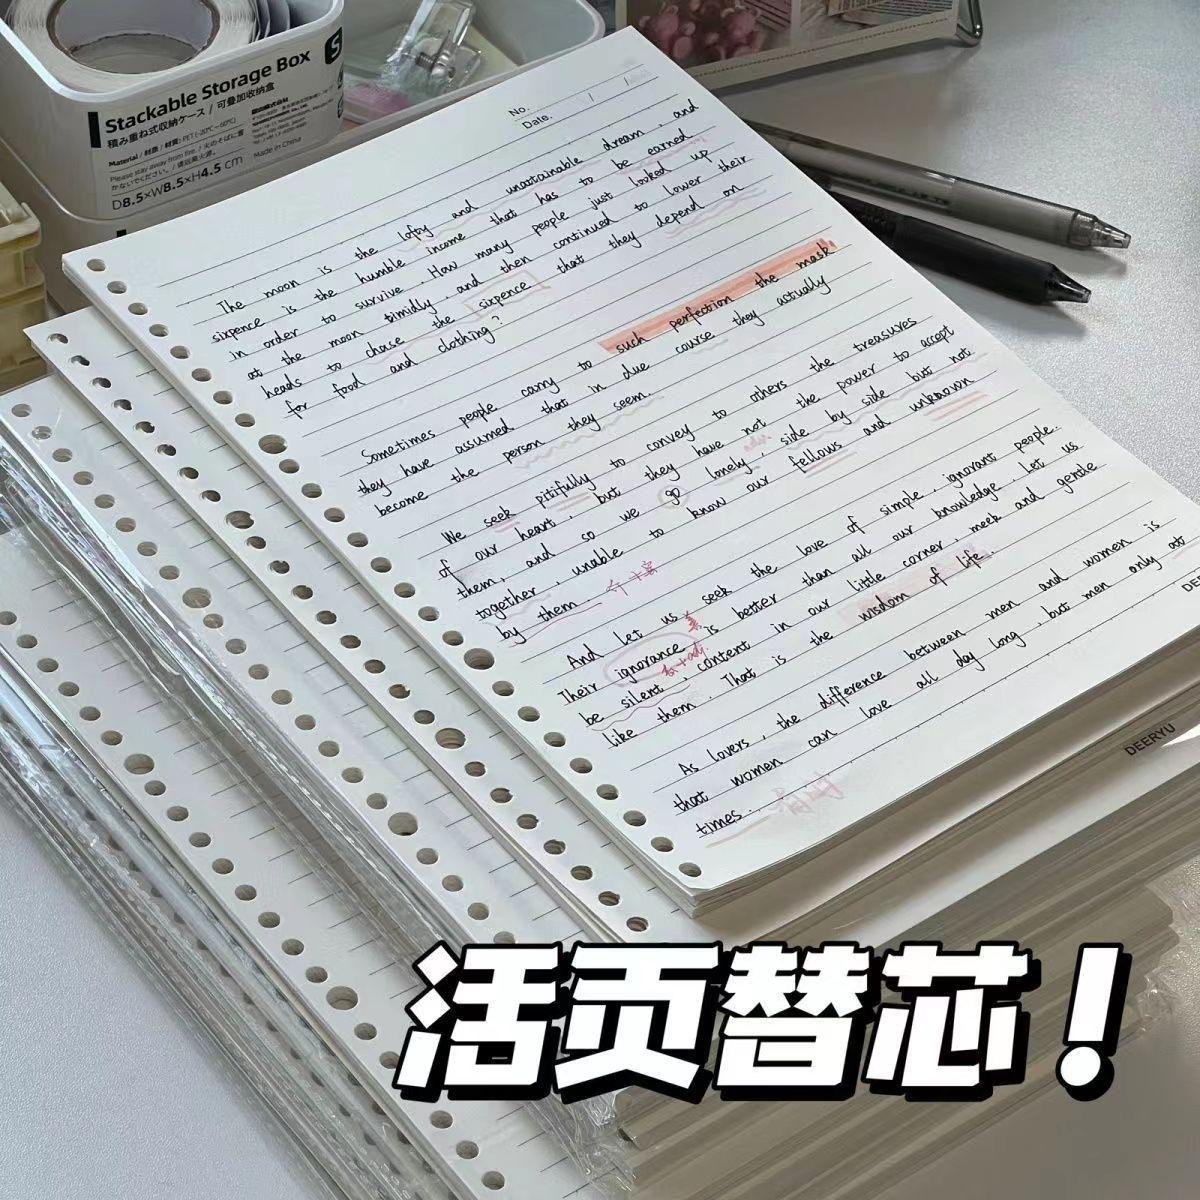 Stackable Storage Box
積み重ね式収納ケース / 可叠加收纳盒
Material / 材质 / 材質: PET (-20℃~60℃)
Please stay away from fire. / 火のそばに置
かないでください。/ 请远离火源。
D8.5×W8.5×H4.5 cm
Made in China
No.
Date.
The moon is the lofty and unattainable dream, and
sixpence is the humble income that has to be earned
in order to survive. How many people just looked up
at the moon timidly, and then continued to lower their
heads to chase the sixpence that they depend on
for food and clothing?
Sometimes people carry to such perfection the mask
they have assumed that in due course they actually
become the person they seem.
We seek pitifully to convey to others the treasures
of our heart, but they have not the power to accept
them, and so we go lonely, side by side but not
together, unable to know our fellows and unknown
by them
adv.
And let us seek the love of simple, ignorant people.
Their ignorance is better than all our knowledge. Let us
be silent, content in our little corner, meek and gentle
like them. That is the wisdom of life.
+adj.
As lovers, the difference between men and women is
that women can love all day long, but men only at
times.
DEERYU
活页替芯!